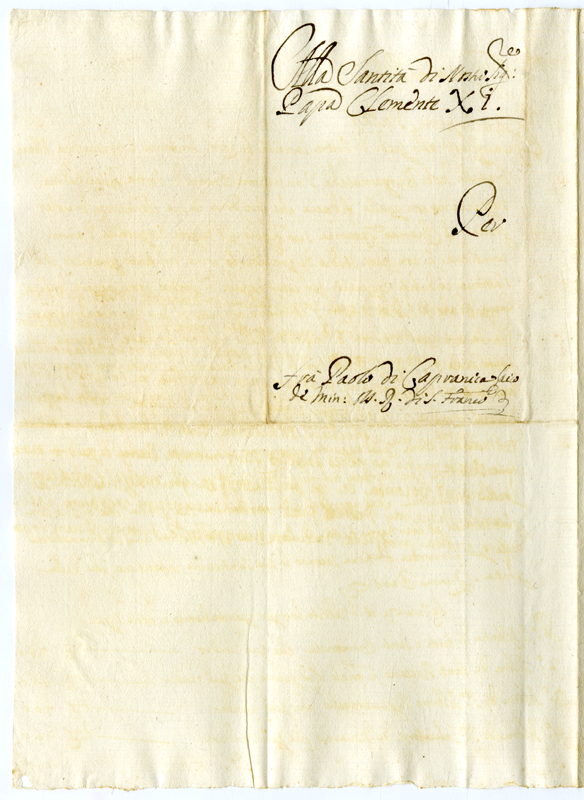 Alla Santità di Nostro Sigre:
Papa Clemente XI.
Per
Frà Paolo di Capranica
de Min: di S. Franco